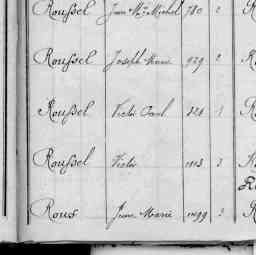 Roussel Jean Mie Michel 780 2
Roussel Joseph Marie 979 2
Roussel Victor Paul 328 1
Roussel Victor 1113 3
Rous Jean Marie 1499 2